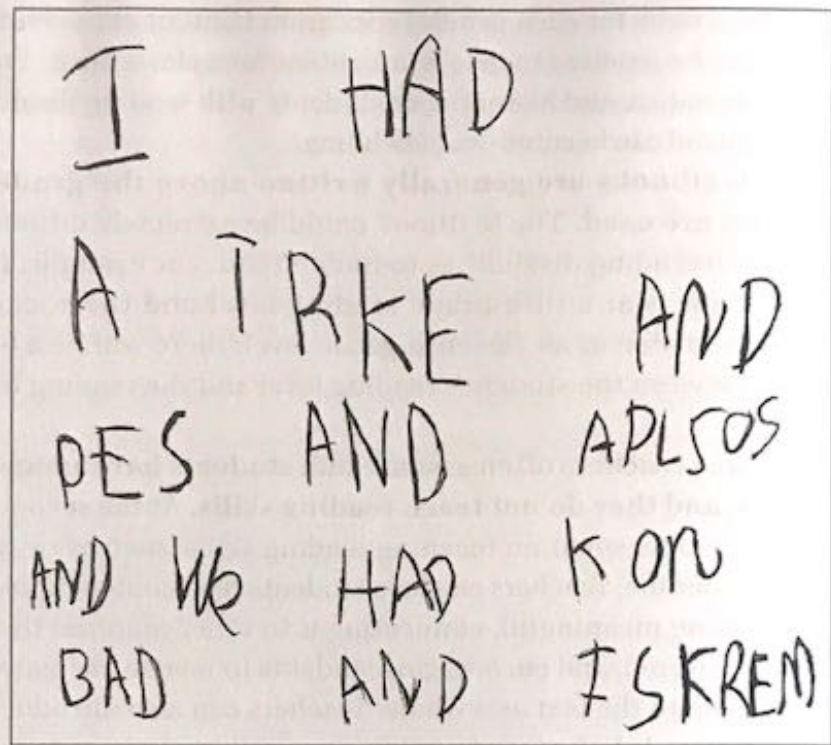 I HAD
A TRKE AND
PES AND APLSOS
AND WO HAD KON
BAD AND ISKREM